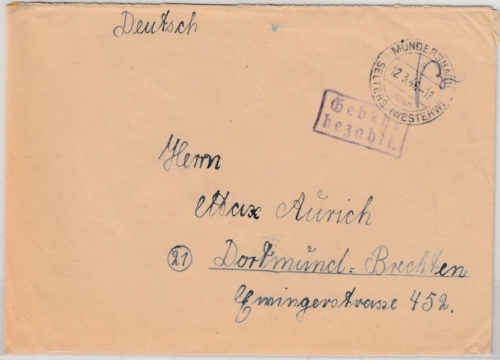 Deutsch
MÜNDERSBACH
12.3.46-12
über
SELTERS (WESTERW)
Gebühr
bezahlt.
Herrn
Max Aurich
(21) Dortmund-Brechten
Ewingerstrasse 452.